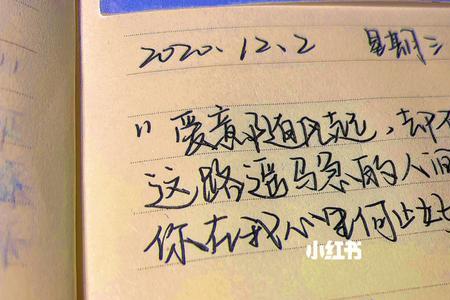 2020.12.2 星期三
"爱意随风起,却不
这路遥马急的人间
你在我心里何止好
小红书